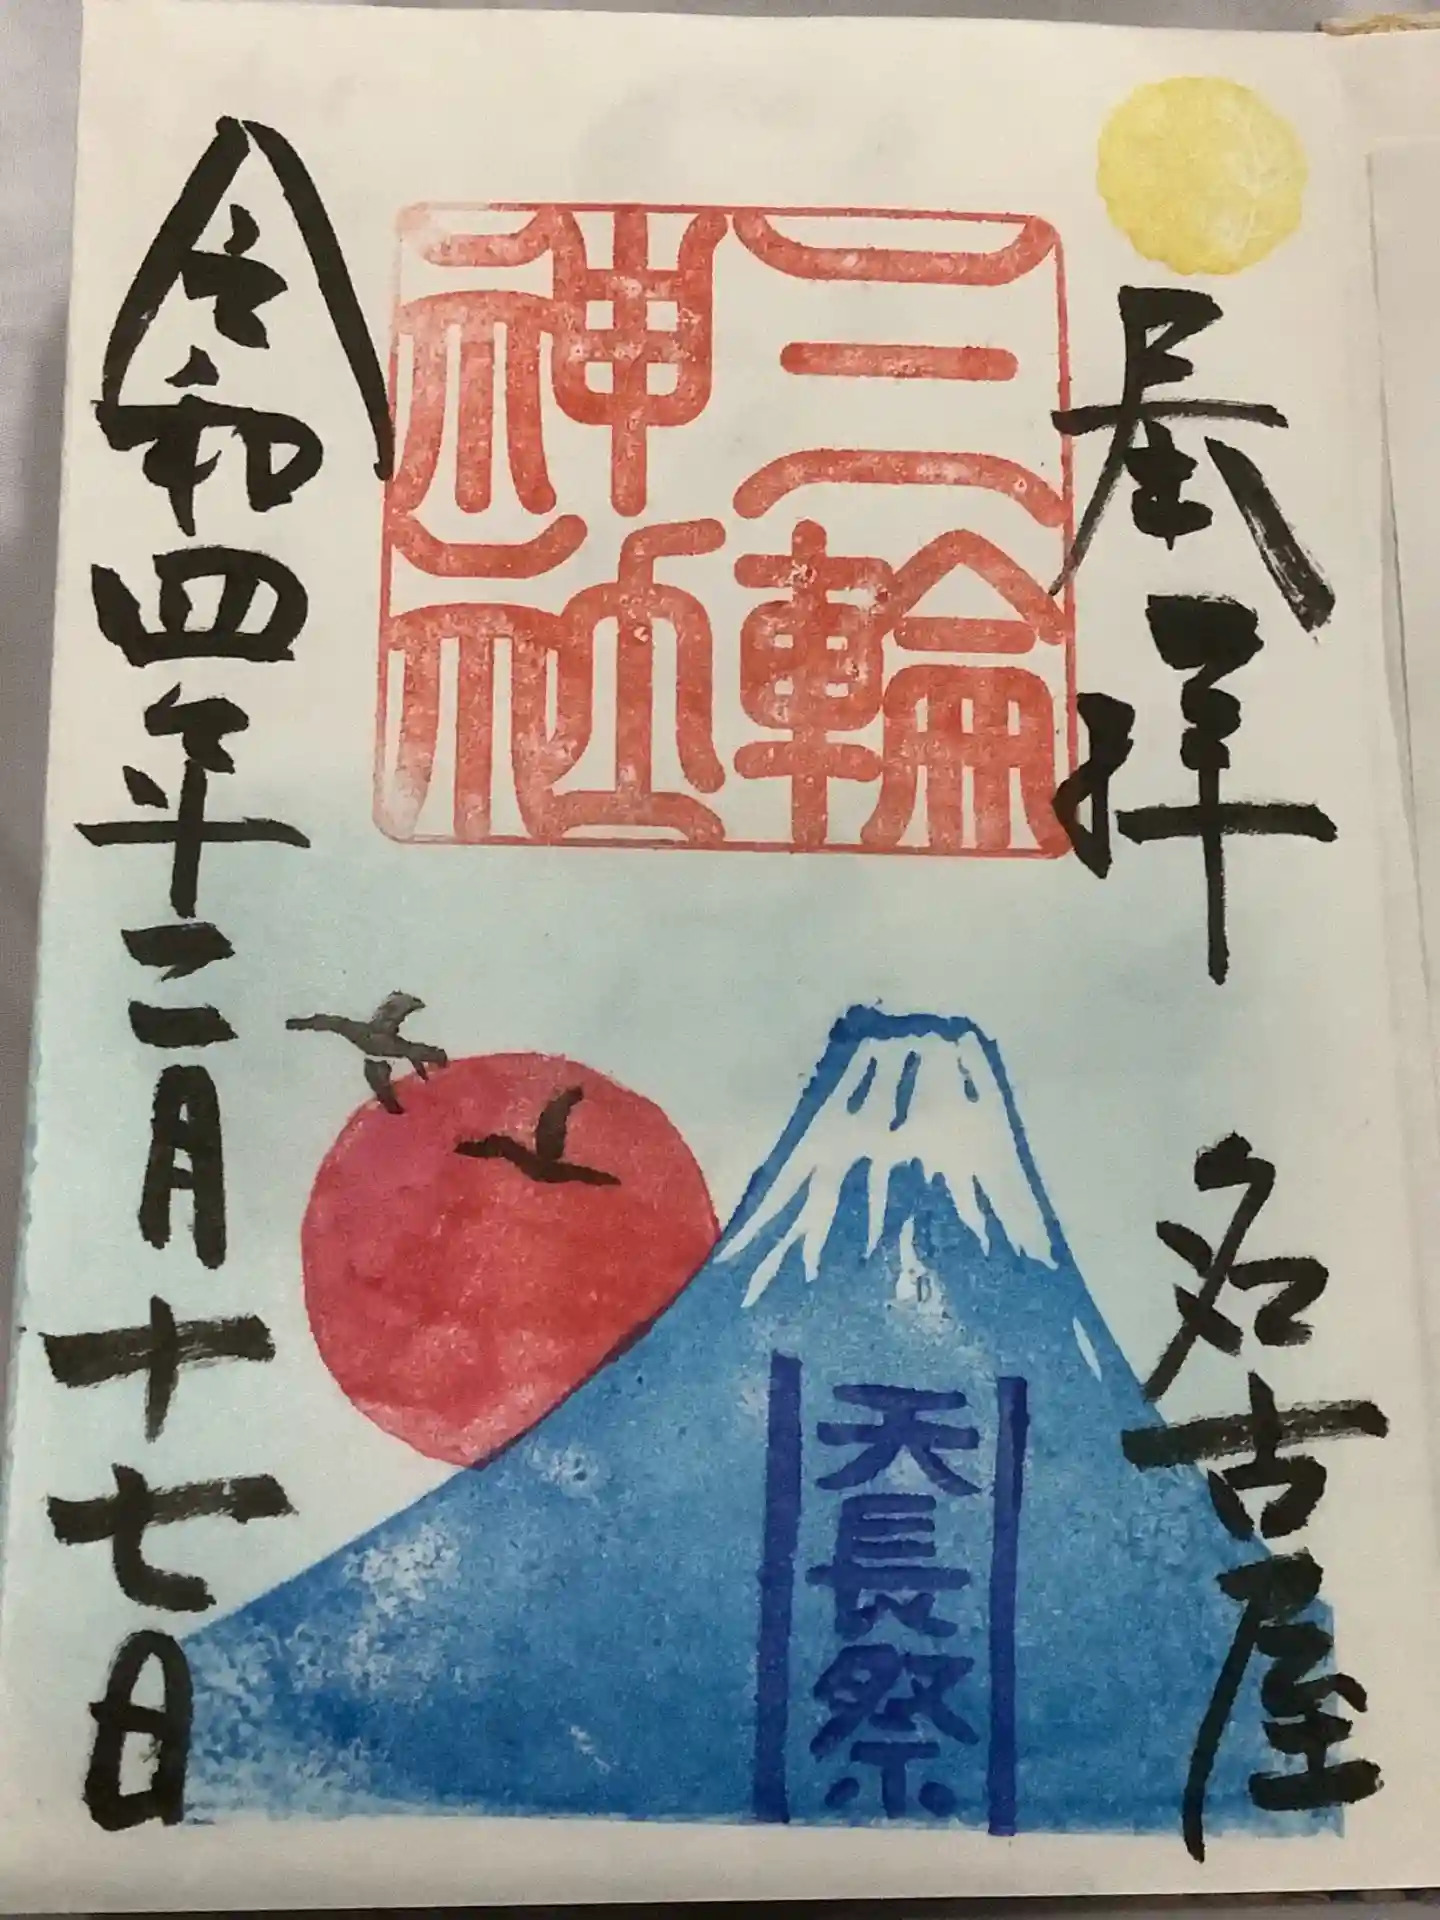 奉拝　名古屋
三輪
神社
天長祭
令和四年二月十七日